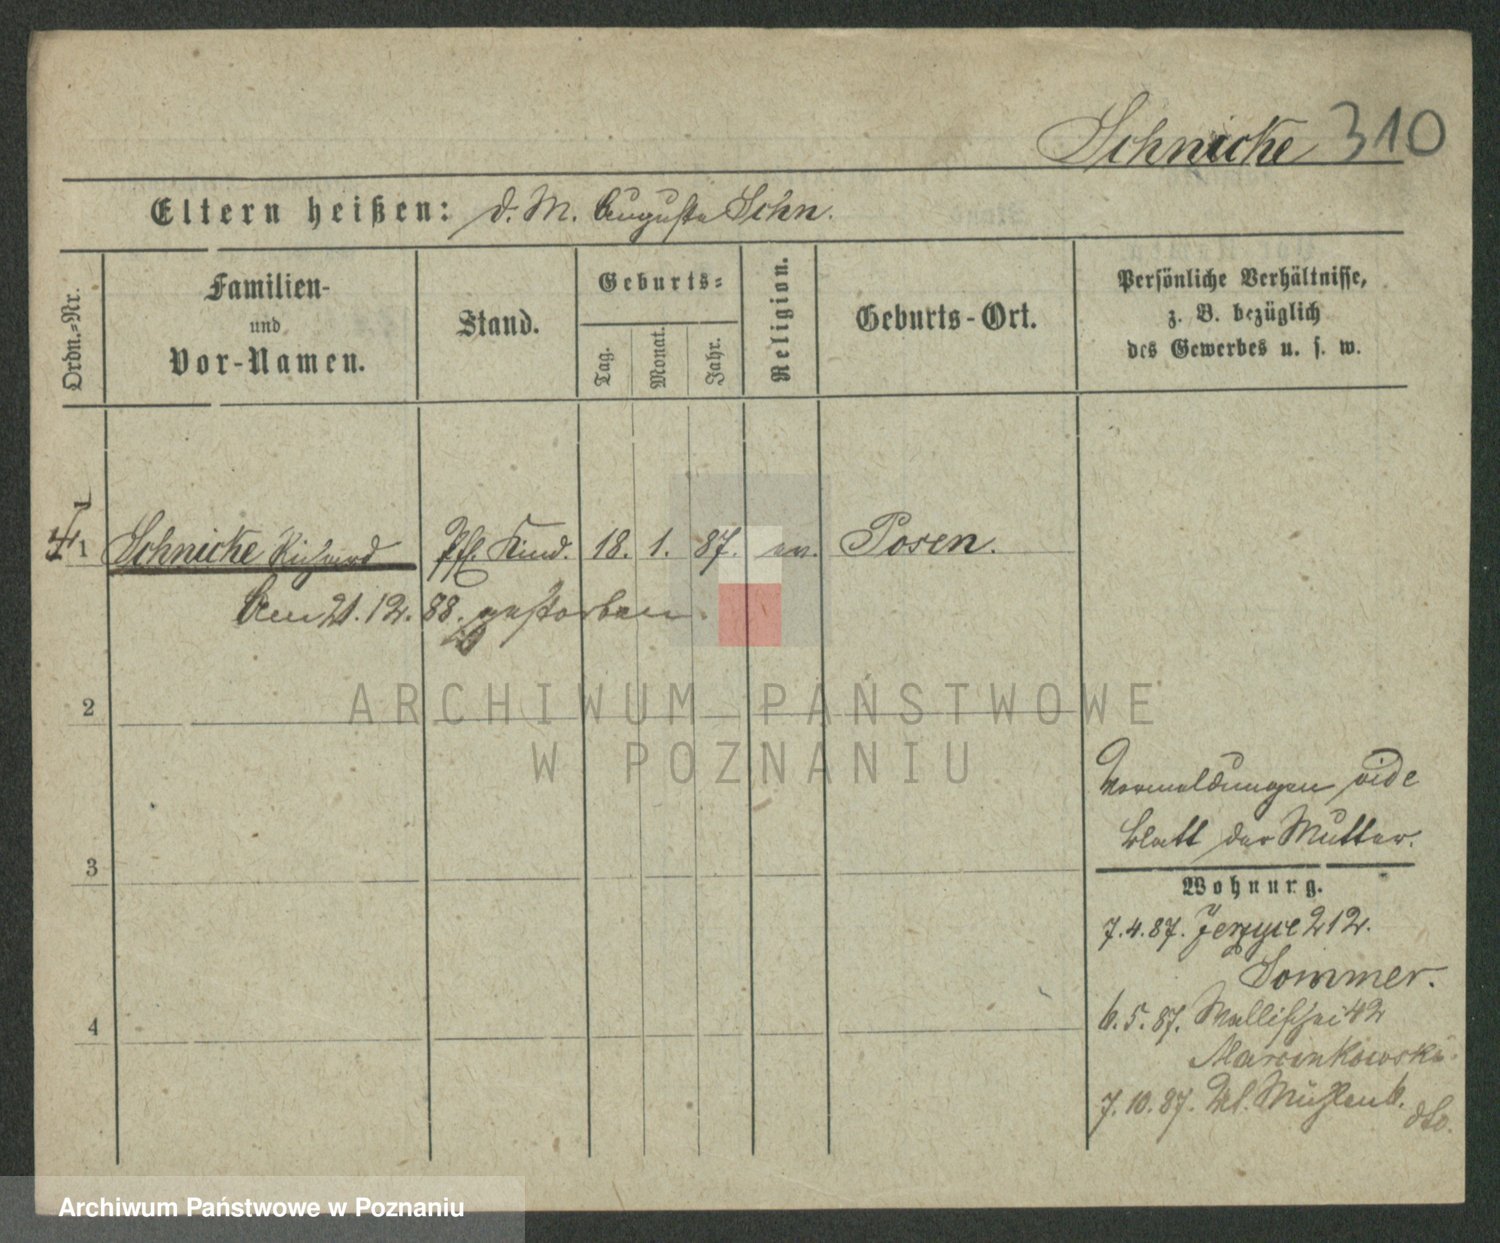 Schnicke 310
Eltern heißen: d. M. Auguste Schn.
Ordn.=Nr.
Familien-
und
Vor-Namen.
Stand.
Geburts=
Tag.
Monat.
Jahr.
Religion.
Geburts-Ort.
Persönliche Verhältnisse,
z. B. bezüglich
des Gewerbes u. s. w.
1 Schnicke Richard Pfl. Kind. 18. 1. 87. ev. Posen.
Am 21.12.88. gestorben.
2
ARCHIWUM PAŃSTWOWE
W POZNANIU
Vormeldungen vide
Blatt der Mutter.
3
Wohnung.
7.4.87. Jerzyce 212.
Sommer.
4
6.5.87. Wallischei 42
Marcinkowski.
7.10.87. Kl. Mühlen 6.
dto.
Archiwum Państwowe w Poznaniu